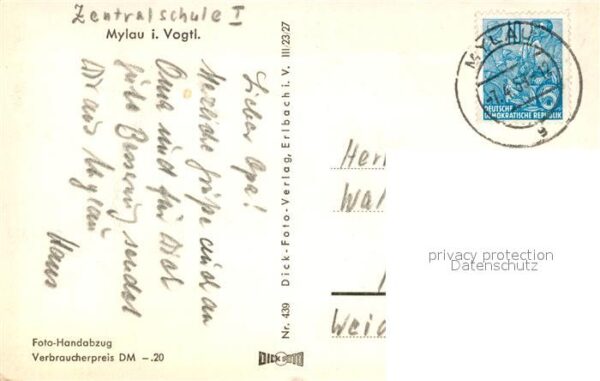 Zentralschule I
Mylau i. Vogtl.
Lieber Opa!
Herzliche Grüße auch an
Oma und für Dich
gute Besserung sendet
Dir aus Mylau
Hans
Foto-Handabzug
Verbraucherpreis DM –.20
Nr. 439 Dick-Foto-Verlag, Erlbach i. V. III/23/27
DICK FOTO
MYLAU
DEUTSCHE
DEMOKRATISCHE REPUBLIK
Her
Wal
Weid
privacy protection
Datenschutz